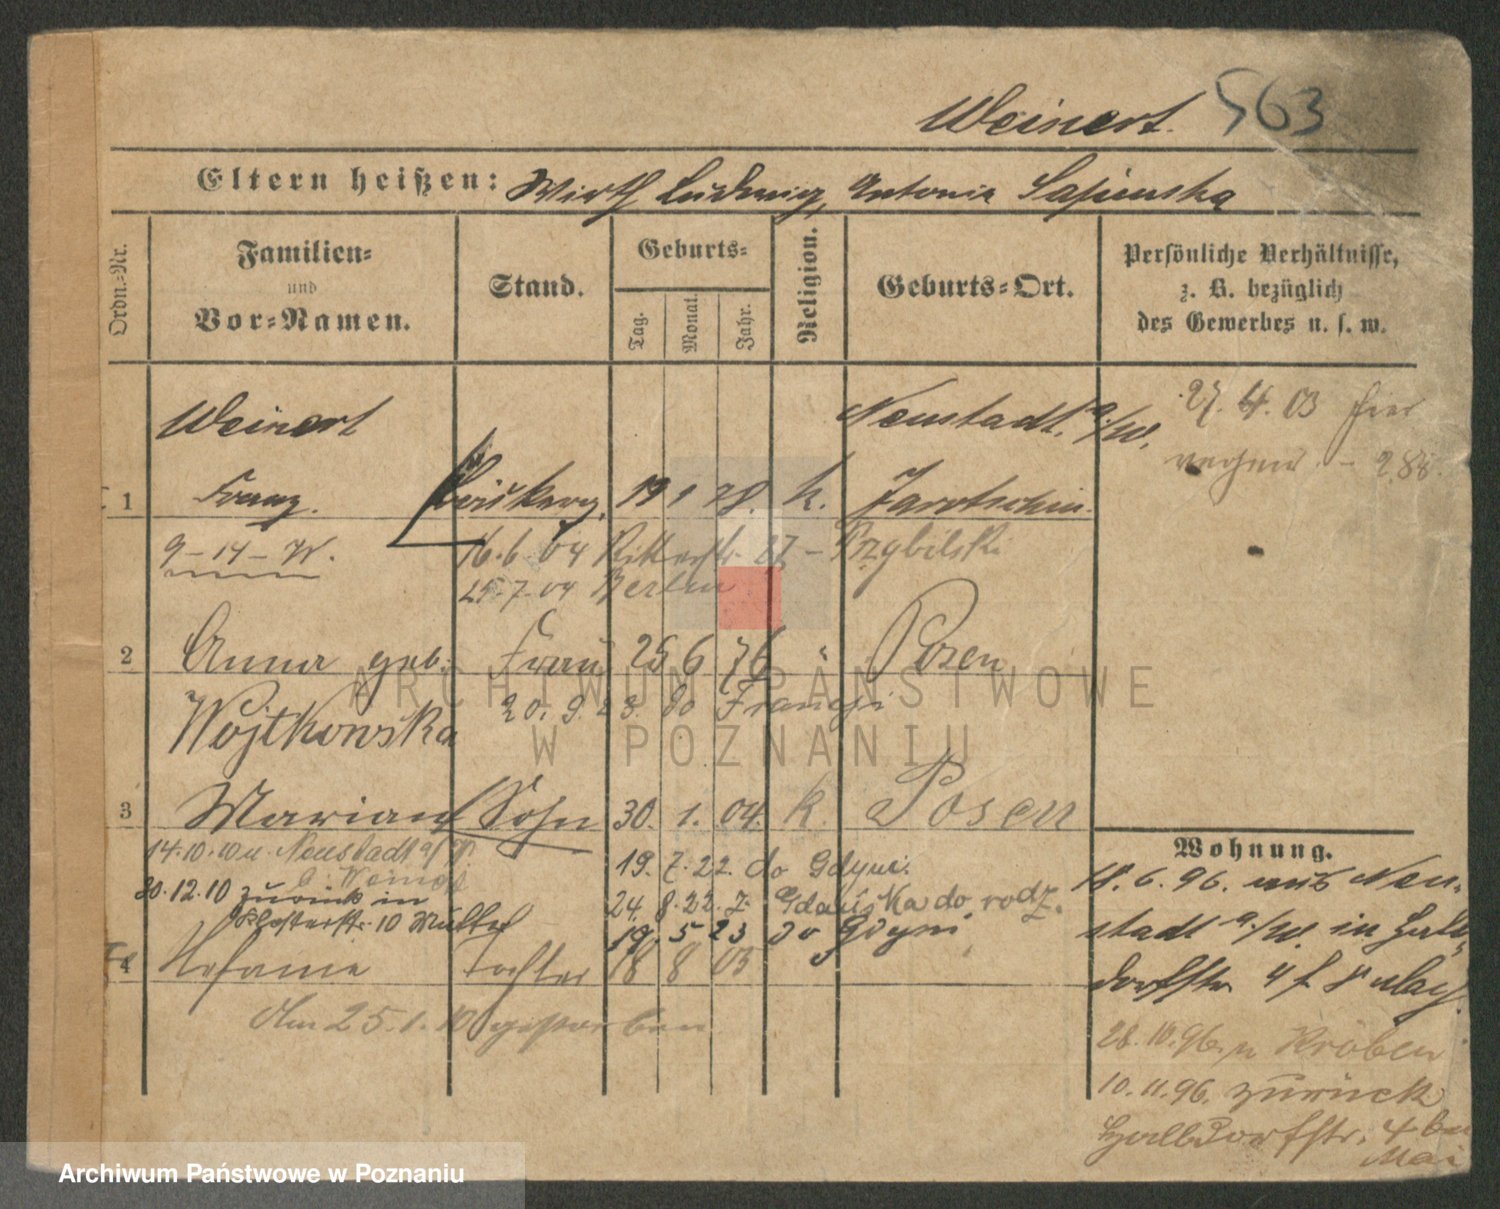 Weinert. 563
Eltern heißen: Wirth Ludwig, Antonie
Ordn.-Nr.
Familien-
und
Vor-Namen.
Stand.
Geburts-
Tag.
Monat.
Jahr.
Religion.
Geburts-Ort.
Persönliche Verhältnisse,
z. B. bezüglich
des Gewerbes u. s. w.
Weinert Neustadt a/W. 27. 4. 03 hier
1 Franz. 19 1 78. k. Jarotschin
9-14-W. 16.6.04 Ritterstr. 27 - Przybilski
25.7.04 Berlin
2 Anna geb. Frau 25 6 76 " Posen
Wojtkowska 20. 9. 23. do Francji
3 Marian Sohn 30. 1. 04. k. Posen
14.10.10 n. Neustadt a/W.
19. 7. 22. do Gdyni.
30.12.10 zurück in
24. 8. 22. z Gdańska do rodz.
Klosterstr. 10
19. 5 23 do Gdyni
4 Stefanie Tochter 18 8 05
Am 25.1.10 gestorben
Wohnung.
18. 6. 96. aus Neu-
stadt a/W. in Halb-
dorfstr 4 f
28. 10. 96. n Kröben
10. 11. 96. zurück
Halbdorfstr. 4 bei
Mai
ARCHIWUM PAŃSTWOWE
W POZNANIU
Archiwum Państwowe w Poznaniu